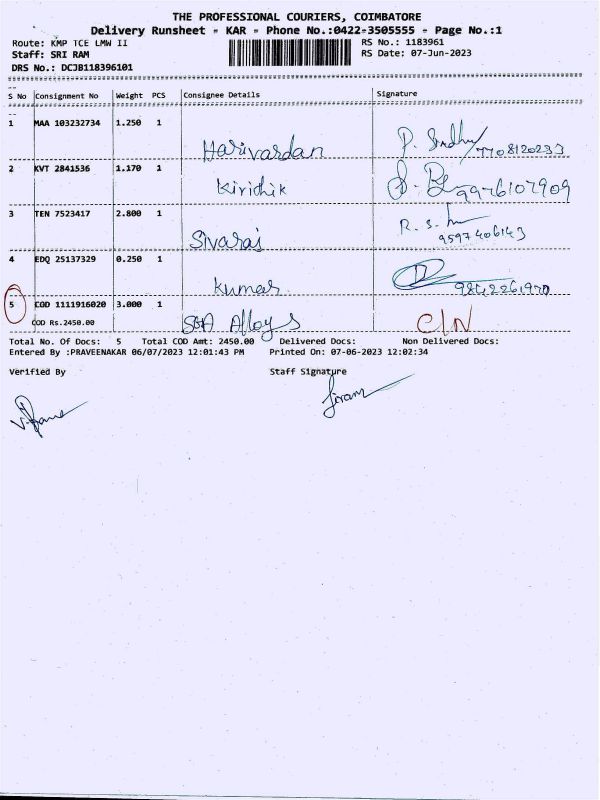 THE PROFESSIONAL COURIERS, COIMBATORE
Delivery Runsheet - KAR - Phone No.:0422-3505555 - Page No.:1
Route: KMP TCE LMW II RS No.: 1183961
Staff: SRI RAM RS Date: 07-Jun-2023
DRS No.: DCJB118396101
S No Consignment No Weight PCS Consignee Details Signature
1 MAA 103232734 1.250 1 Harivardan P. Sindhu 7708120233
2 KVT 2841536 1.170 1 Kirithik 9976107909
3 TEN 7523417 2.800 1 Sivaraj R. S. 9597406143
4 EDQ 25137329 0.250 1 Kumar 9842261970
5 COD 1111916020 3.000 1 S&A Alloys C/N
COD Rs.2450.00
Total No. Of Docs: 5 Total COD Amt: 2450.00 Delivered Docs: Non Delivered Docs:
Entered By :PRAVEENAKAR 06/07/2023 12:01:43 PM Printed On: 07-06-2023 12:02:34
Verified By Staff Signature